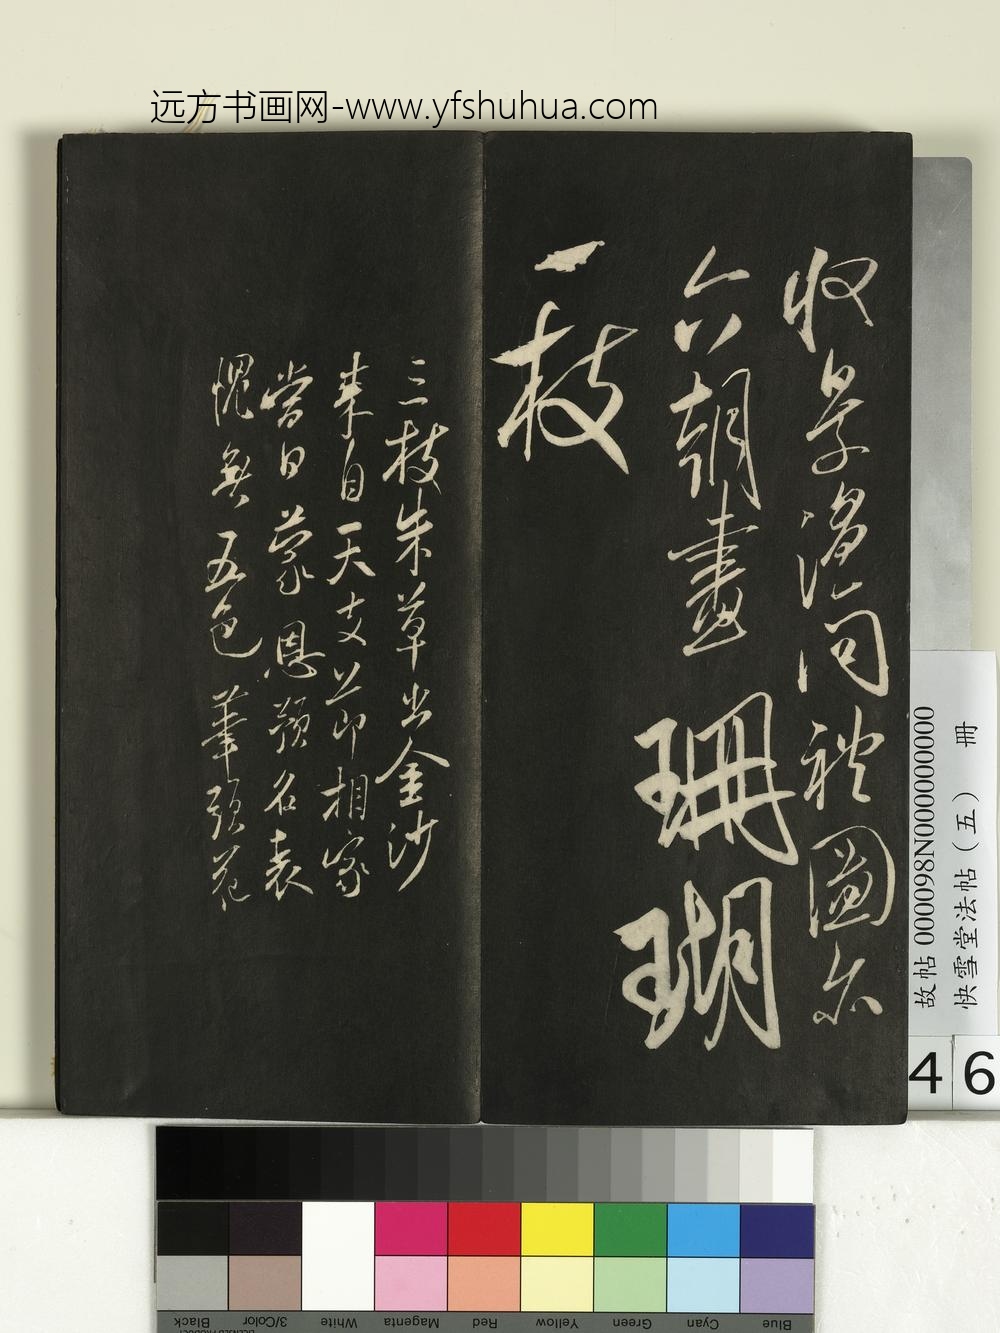 远方书画网-www.yfshuhua.com
收景温问礼图亦
六朝畫珊瑚
一枝
三枝朱草出金沙
来自天支节相家
当日蒙恩预名表
愧無五色筆頭花
故帖 000098N000000000
快雪堂法帖（五） 冊
46
Black
3/Color
White
Magenta
Red
Yellow
Green
Cyan
Blue